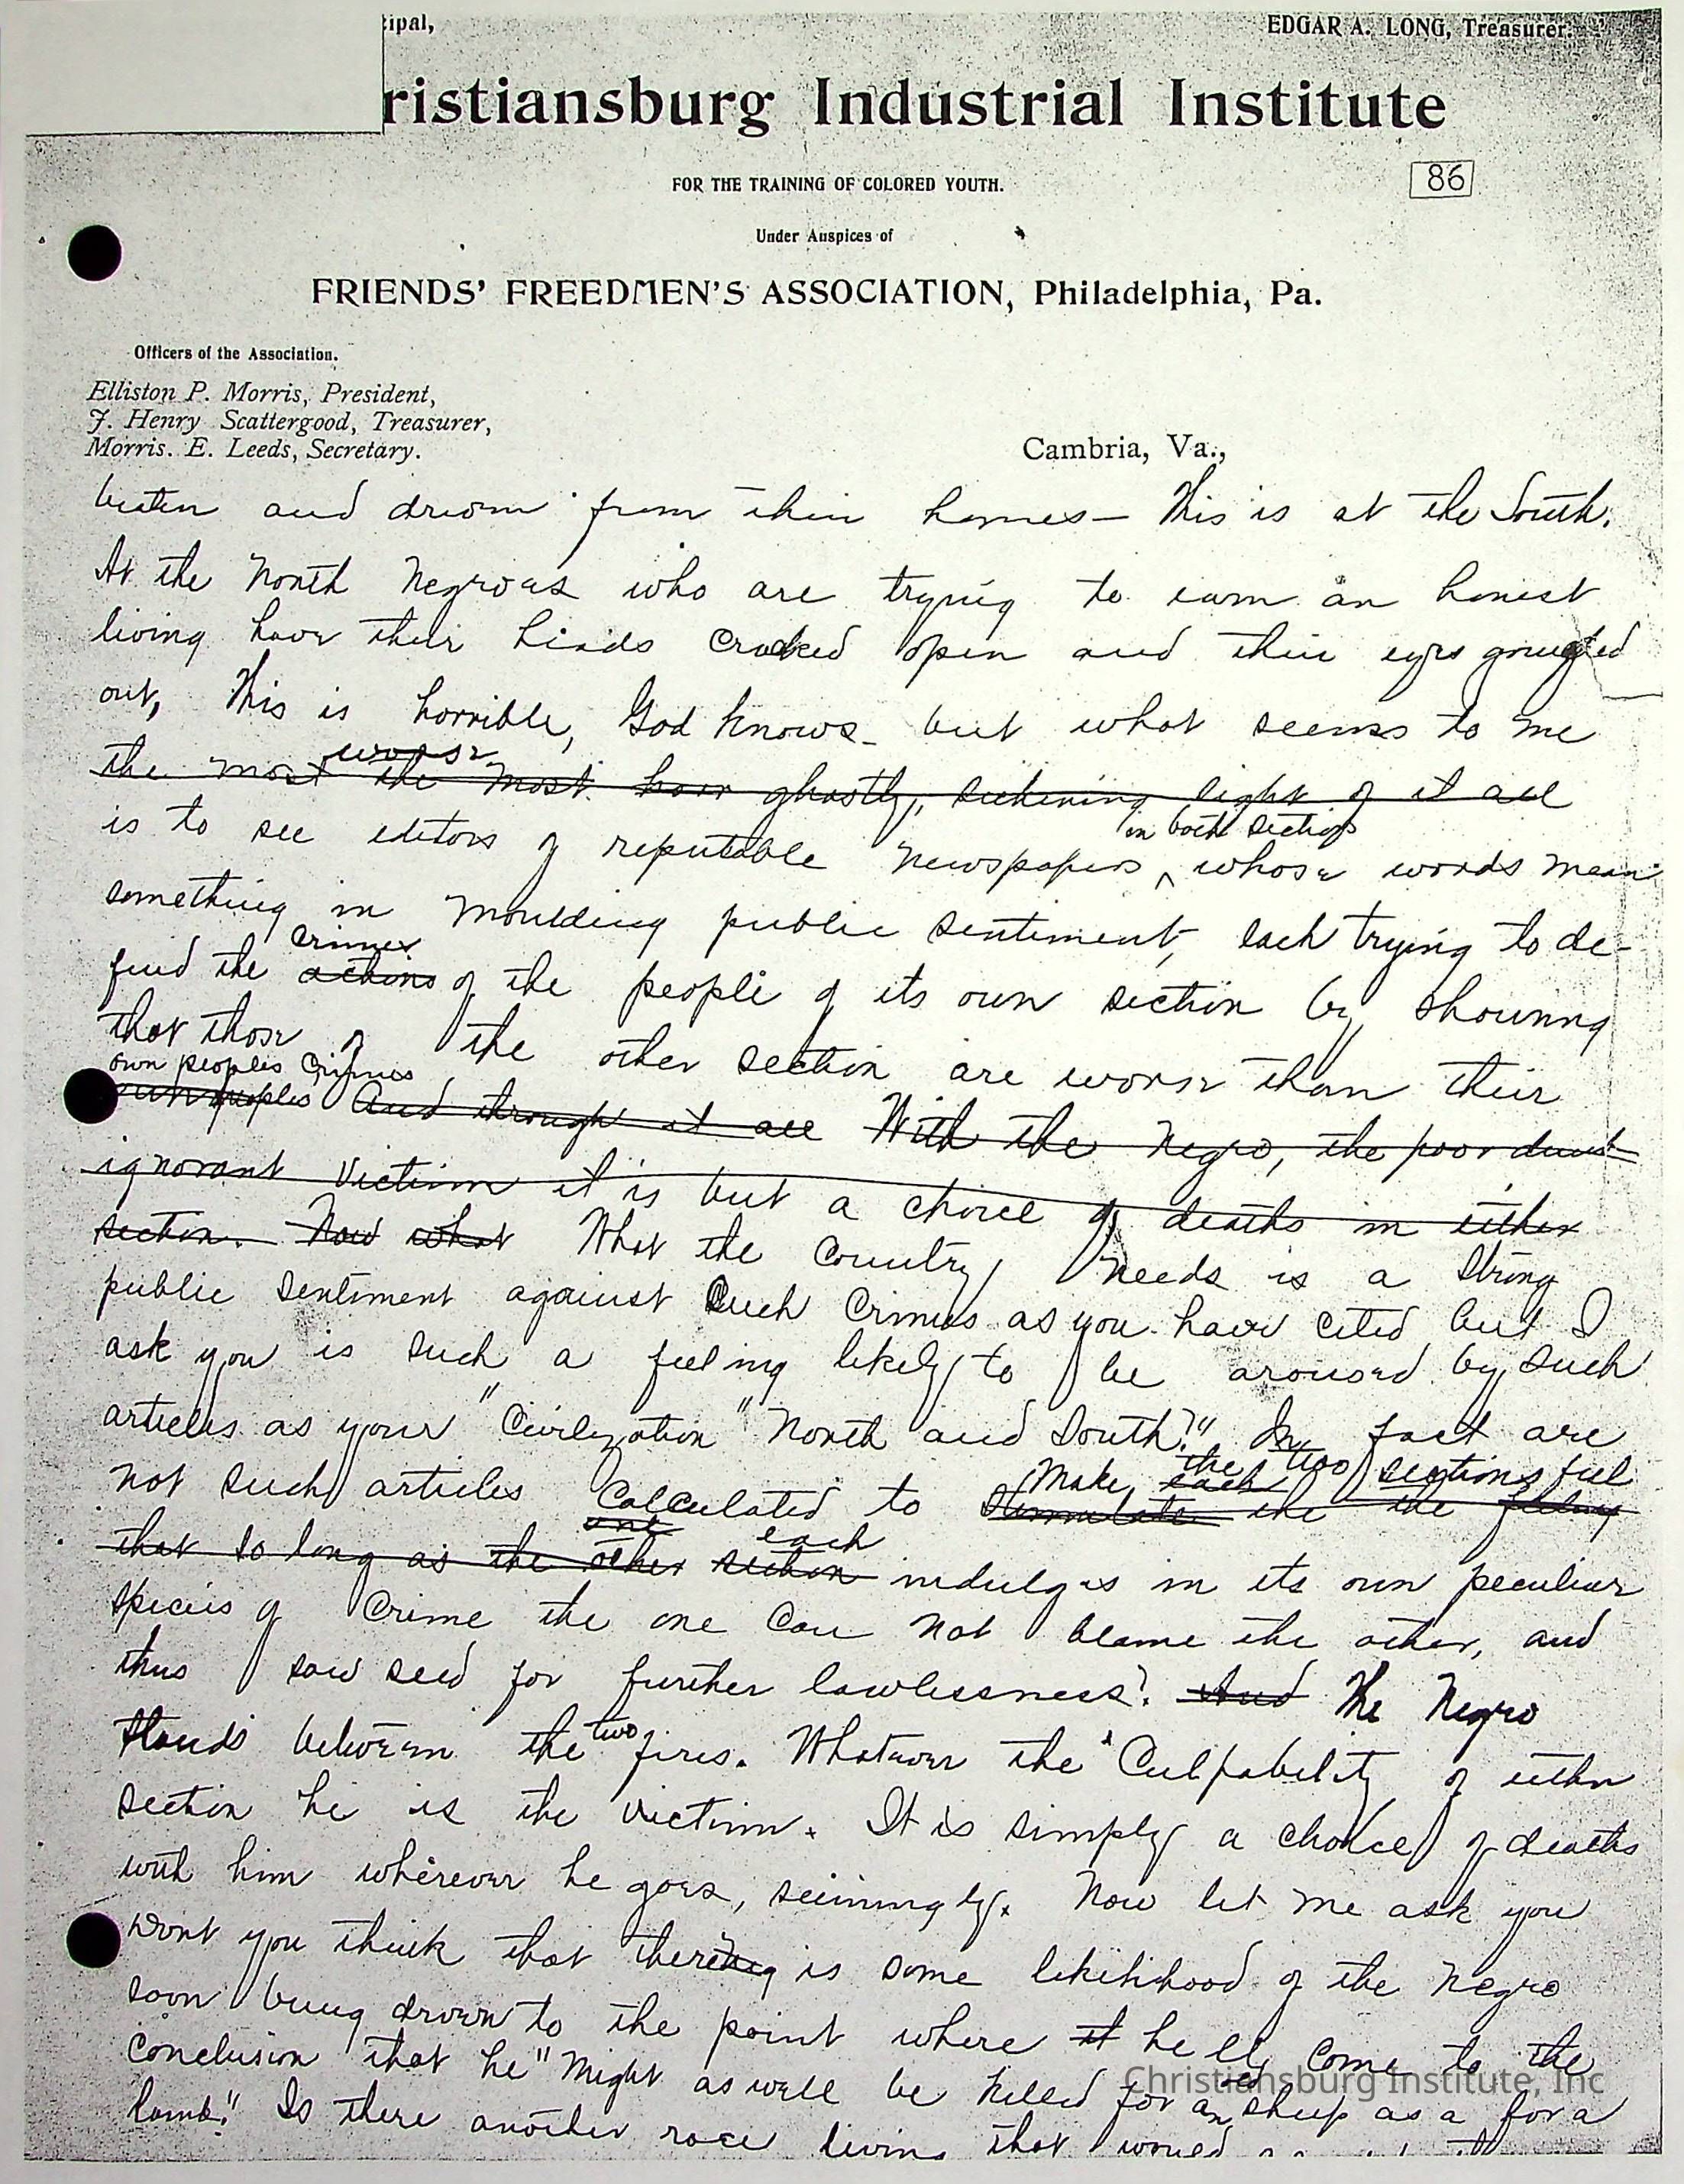 cipal,
EDGAR A. LONG, Treasurer.
ristiansburg Industrial Institute
FOR THE TRAINING OF COLORED YOUTH.
86
Under Auspices of
FRIENDS' FREEDMEN'S ASSOCIATION, Philadelphia, Pa.
Officers of the Association.
Elliston P. Morris, President,
J. Henry Scattergood, Treasurer,
Morris. E. Leeds, Secretary.
Cambria, Va.,
beaten and driven from their homes— This is at the South.
At the North Negroes who are trying to earn an honest
living have their heads cracked open and their eyes gouged
out, This is horrible, God knows- but what seems to me
worse
the most the most horr ghastly, sickening light of it all
in both sections
is to see editors of reputable newspapers, whose words mean
something in moulding public sentiment, each trying to de-
crimes
fend the actions of the people of its own section by showing
that those of the other section are worse than their
own peoples crimes
own peoples And through it all With the Negro, the poor
ignorant victim it is but a choice of deaths in either
section. Now what What the Country needs is a strong
public sentiment against such crimes as you have cited but I
ask you is such a feeling likely to be aroused by such
articles as your "Civilization" North and South?" In fact are
make each the two sections feel
not such articles calculated to stimulate the the feeling
one each
that so long as the other section indulges in its own peculiar
species of crime the one can not blame the other, and
thus sow seed for further lawlessness? And The Negro
stands between the two fires. Whatever the culpability of either
section he is the victim. It is simply a choice of deaths
with him wherever he goes, seemingly. Now let me ask you
Dont you think that there is some likelihood of the Negro
soon being driven to the point where it he come to the
conclusion that he "might as well be killed for an sheep as a for a
lamb." Is there another race living that would
Christiansburg Institute, Inc